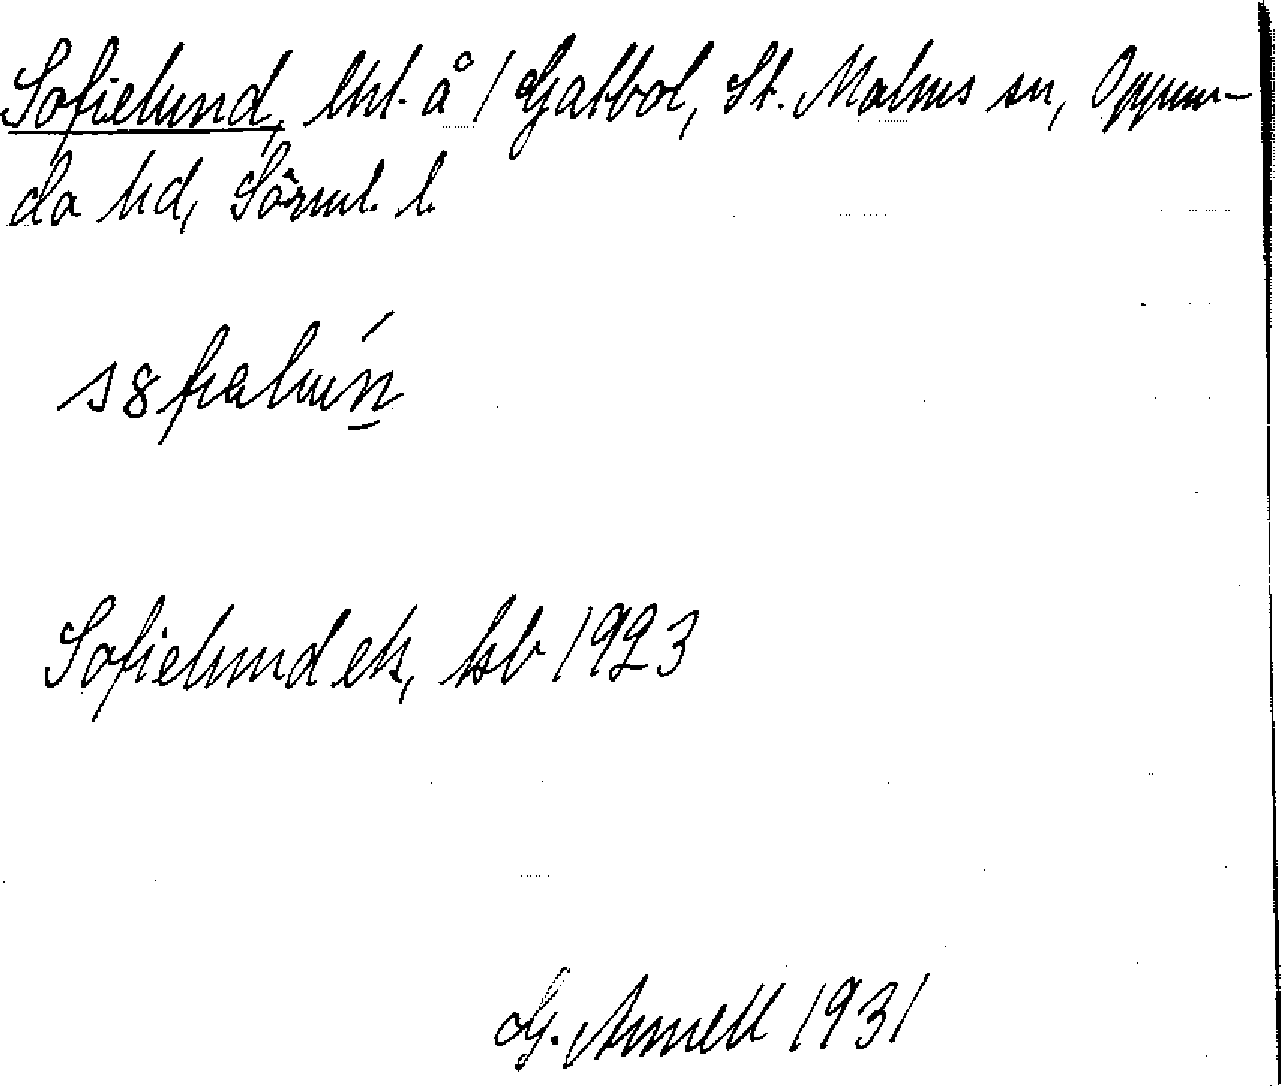 Sofielund, lht. å 1 Gatbol, St. Malms sn, Oppun-
da hd, Sörml. l.
Sofielund ek, kb 1923
G. Arnell 1931